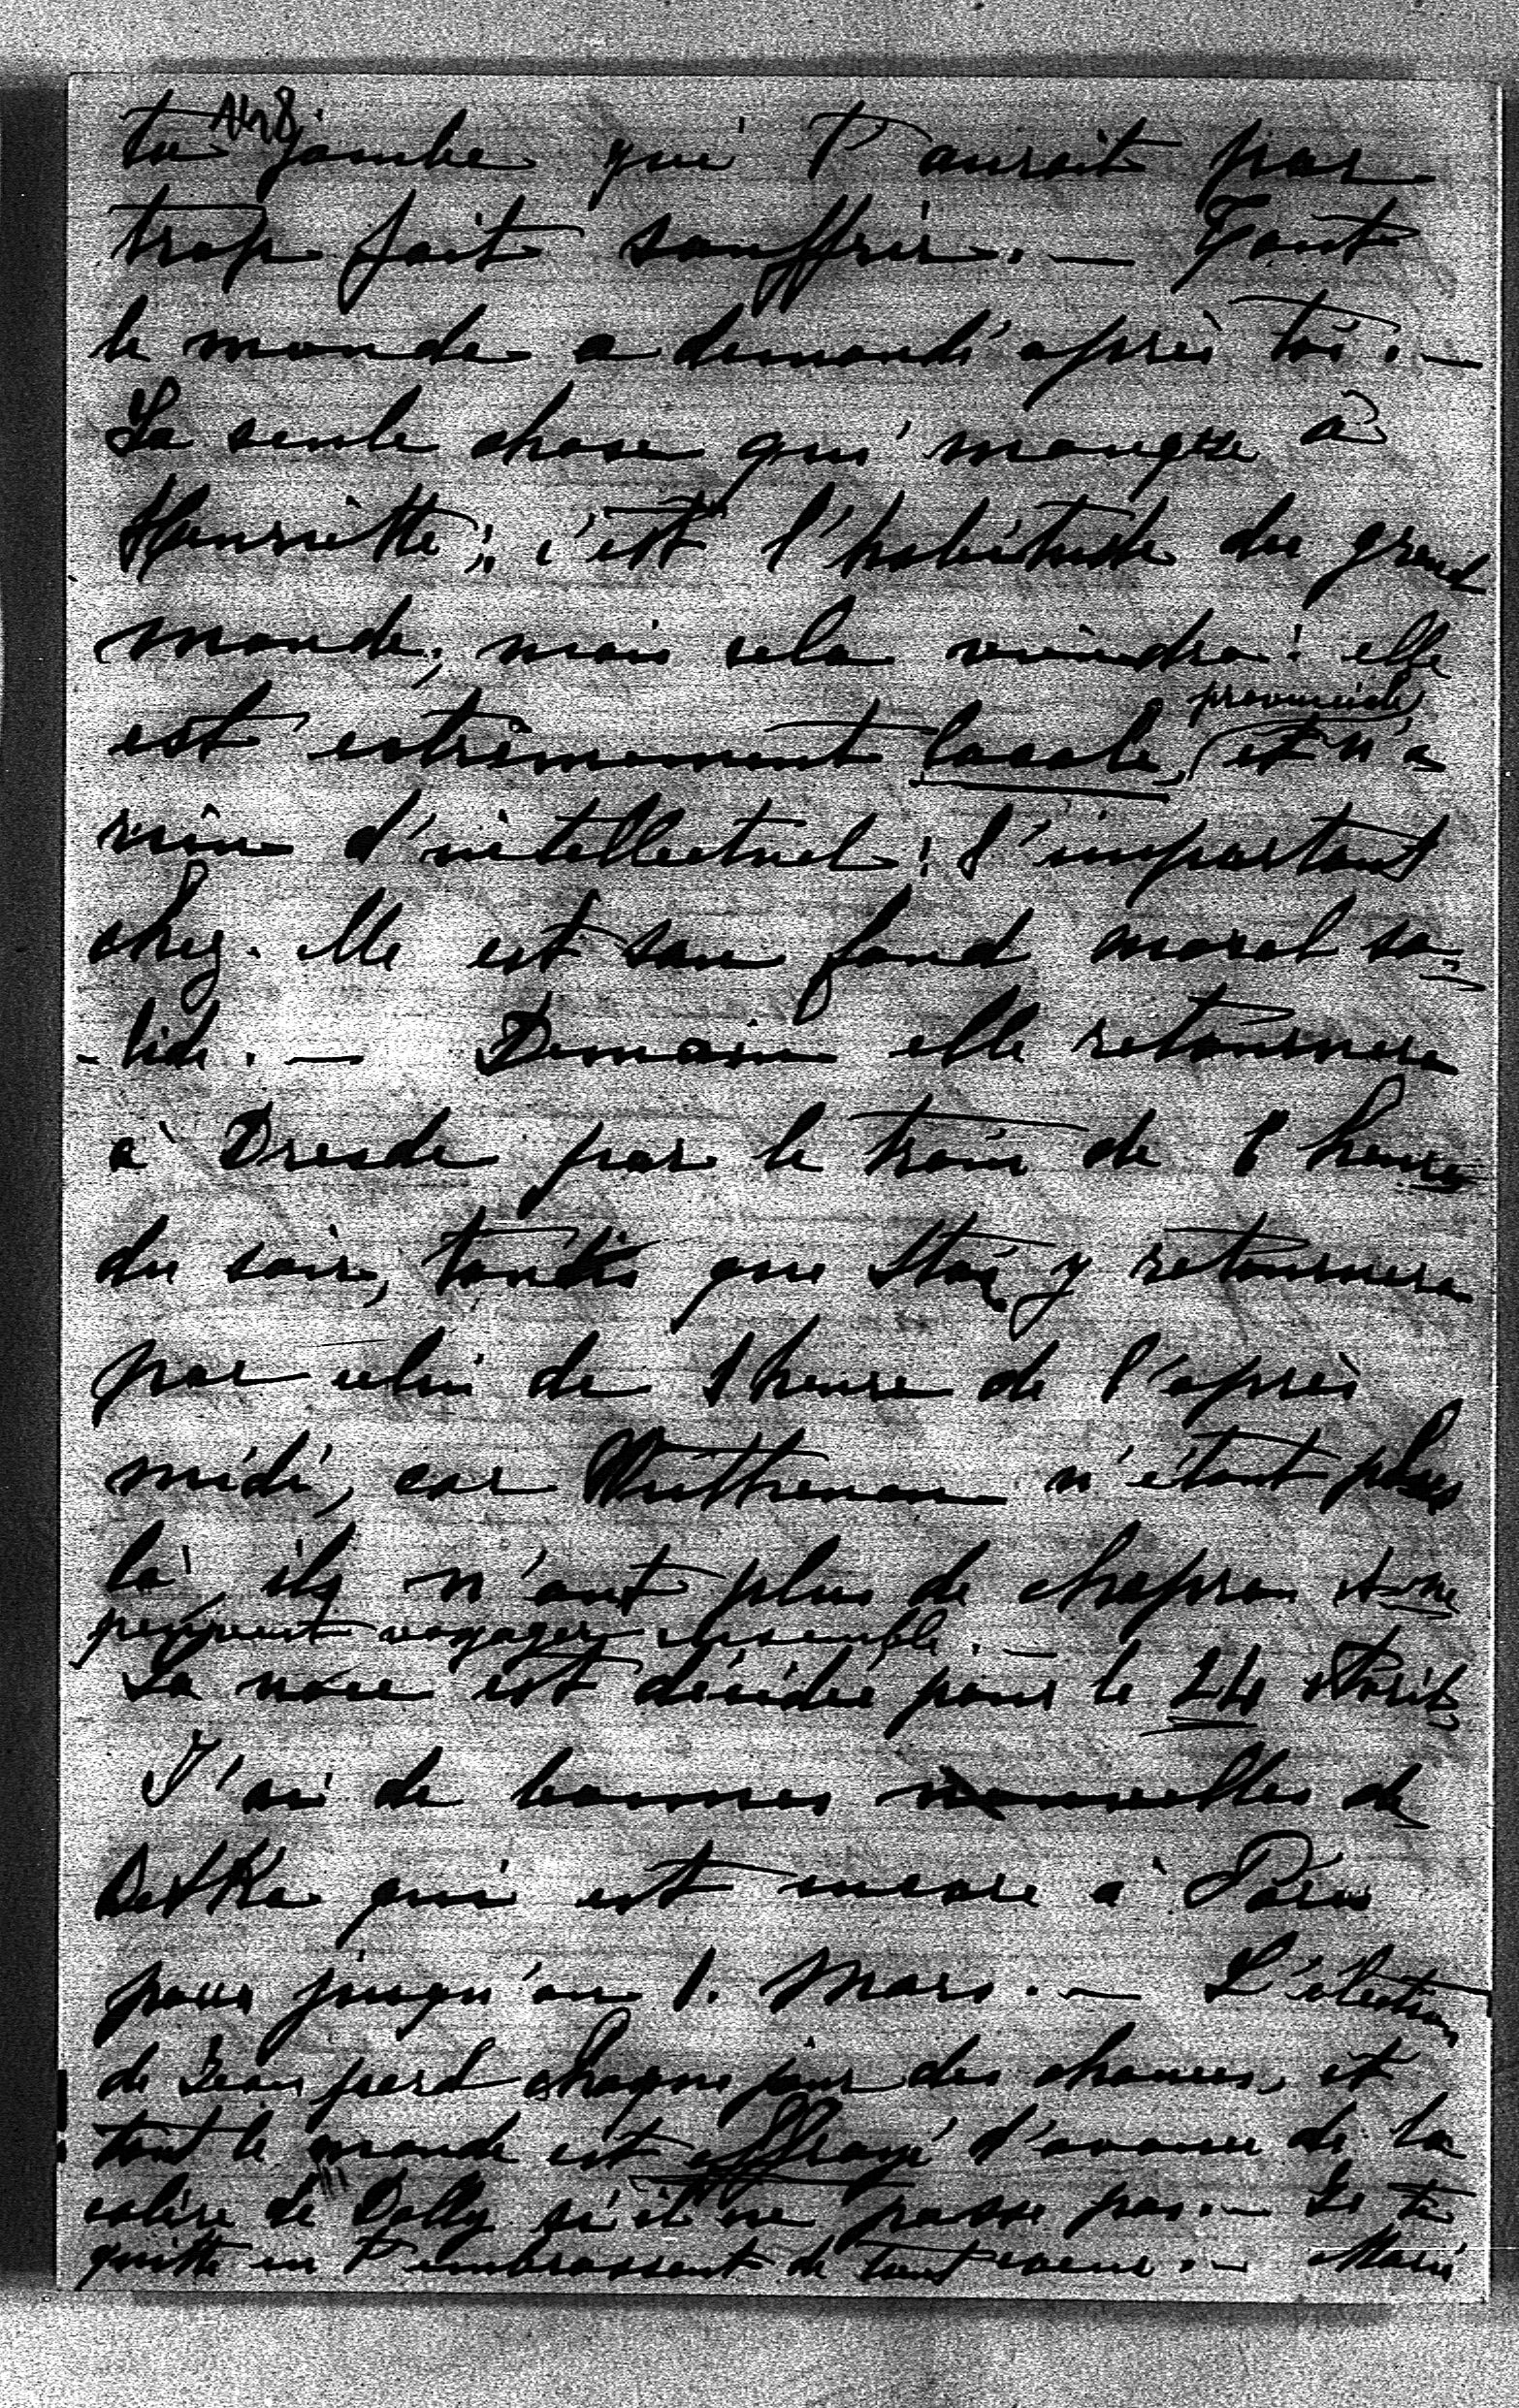 ta jambe qui t'aurait par
trop fait souffrir. — Tout
le monde a demandé après toi. —
La seule chose qui manque à
Henriette; c'est l'habitude du grand
monde; mais cela viendra: elle
provinciale,
est extrêmement locale, et n'a
rien d'intellectuel: l'important
chez elle est son fond moral so-
-lide. — Demain elle retournera
à Dresde par le train de heures
du soir, tandis que y retournera
par celui de 1 heure de l'après
midi, car n'étant plus
là, ils n'ont plus de chapron et ne
peuvent voyager ensemble. —
La noce est décidée pour le 24
J'ai de bonnes nouvelles de
qui est encore à Paris
pour jusqu'au 1. Mars. — L'élection
de Jean perd chaque jour des chances, et
tout le monde est effrayé d'avance de la
colère de Dolly si il ne passe pas. — Je te
quitte en t'embrassant de tout coeur. — Marie